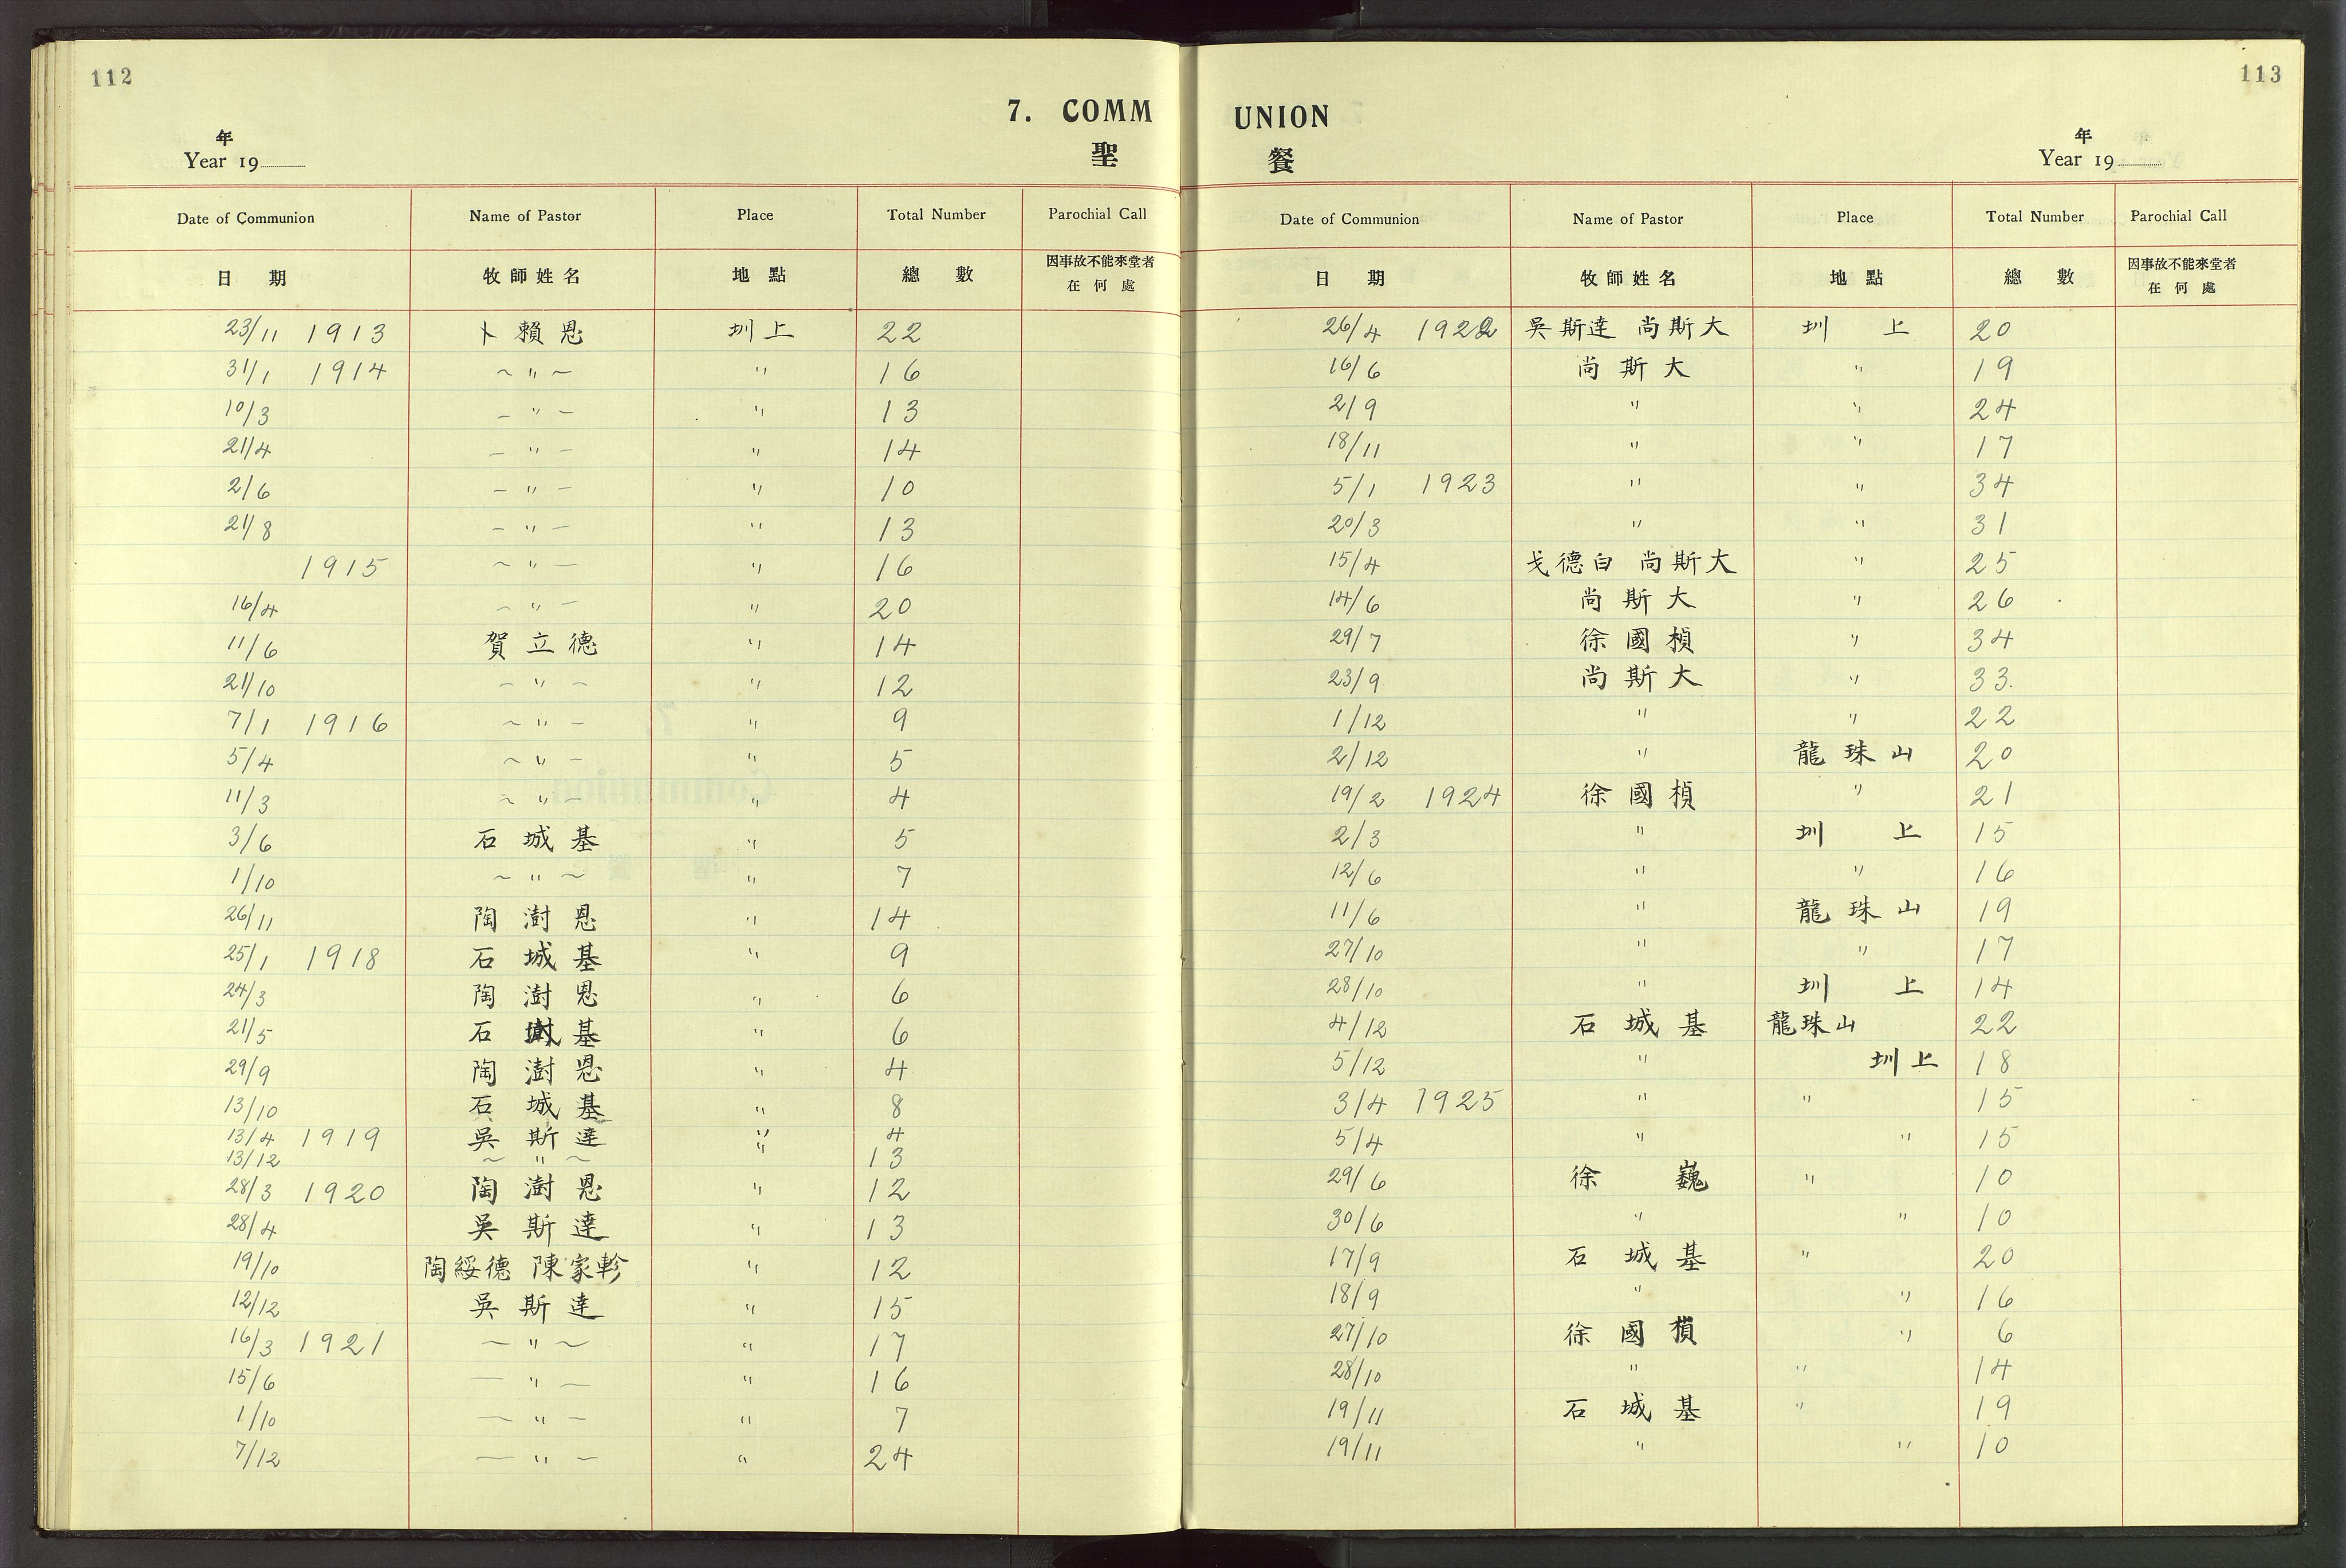 112
7. COMM
年
Year 19
聖
Date of Communion Name of Pastor Place Total Number Parochial Call
日 期 牧師姓名 地點 總數 因事故不能來堂者
在何處
23/11 1913 卜賴恩 圳上 22
31/1 1914 〃 〃 16
10/3 〃 〃 13
21/4 〃 〃 14
2/6 〃 〃 10
21/8 〃 〃 13
1915 〃 〃 16
16/4 〃 〃 20
11/6 賀立德 〃 14
21/10 〃 〃 12
7/1 1916 〃 〃 9
5/4 〃 〃 5
11/3 〃 〃 4
3/6 石城基 〃 5
1/10 〃 〃 7
26/11 陶澍恩 〃 14
25/1 1918 石城基 〃 9
24/3 陶澍恩 〃 6
21/5 石城基 〃 6
29/9 陶澍恩 〃 4
13/10 石城基 〃 8
13/4 1919 吳斯達 〃 4
13/12 〃 〃 13
28/3 1920 陶澍恩 〃 12
28/4 吳斯達 〃 13
19/10 陶綏德 陳家軫 〃 12
12/12 吳斯達 〃 15
16/3 1921 〃 〃 17
15/6 〃 〃 16
1/10 〃 〃 7
7/12 〃 〃 24
113
UNION
年
Year 19
餐
Date of Communion Name of Pastor Place Total Number Parochial Call
日 期 牧師姓名 地點 總數 因事故不能來堂者
在何處
26/4 1922 吳斯達 尚斯大 圳上 20
16/6 尚斯大 〃 19
2/9 〃 〃 24
18/11 〃 〃 17
5/1 1923 〃 〃 34
20/3 〃 〃 31
15/4 戈德白 尚斯大 〃 25
14/6 尚斯大 〃 26
29/7 徐國楨 〃 34
23/9 尚斯大 〃 33
1/12 〃 〃 22
2/12 〃 龍珠山 20
19/2 1924 徐國楨 〃 21
2/3 〃 圳上 15
12/6 〃 〃 16
11/6 〃 龍珠山 19
27/10 〃 〃 17
28/10 〃 圳上 14
4/12 石城基 龍珠山 22
5/12 〃 圳上 18
3/4 1925 〃 〃 15
5/4 〃 〃 15
29/6 徐巍 〃 10
30/6 〃 〃 10
17/9 石城基 〃 20
18/9 〃 〃 16
27/10 徐國楨 〃 6
28/10 〃 〃 14
19/11 石城基 〃 19
19/11 〃 〃 10